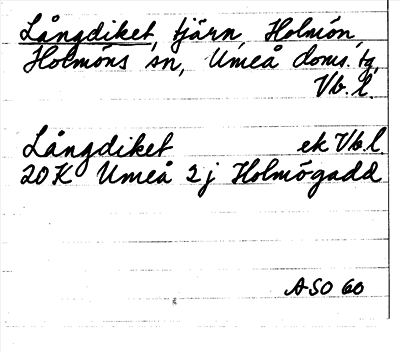 Långdiket, tjärn, Holmön,
Holmöns sn, Umeå doms. tg,
Vb. l.
Långdiket ek Vb.l.
20K Umeå 2j Holmögadd
ASO 60